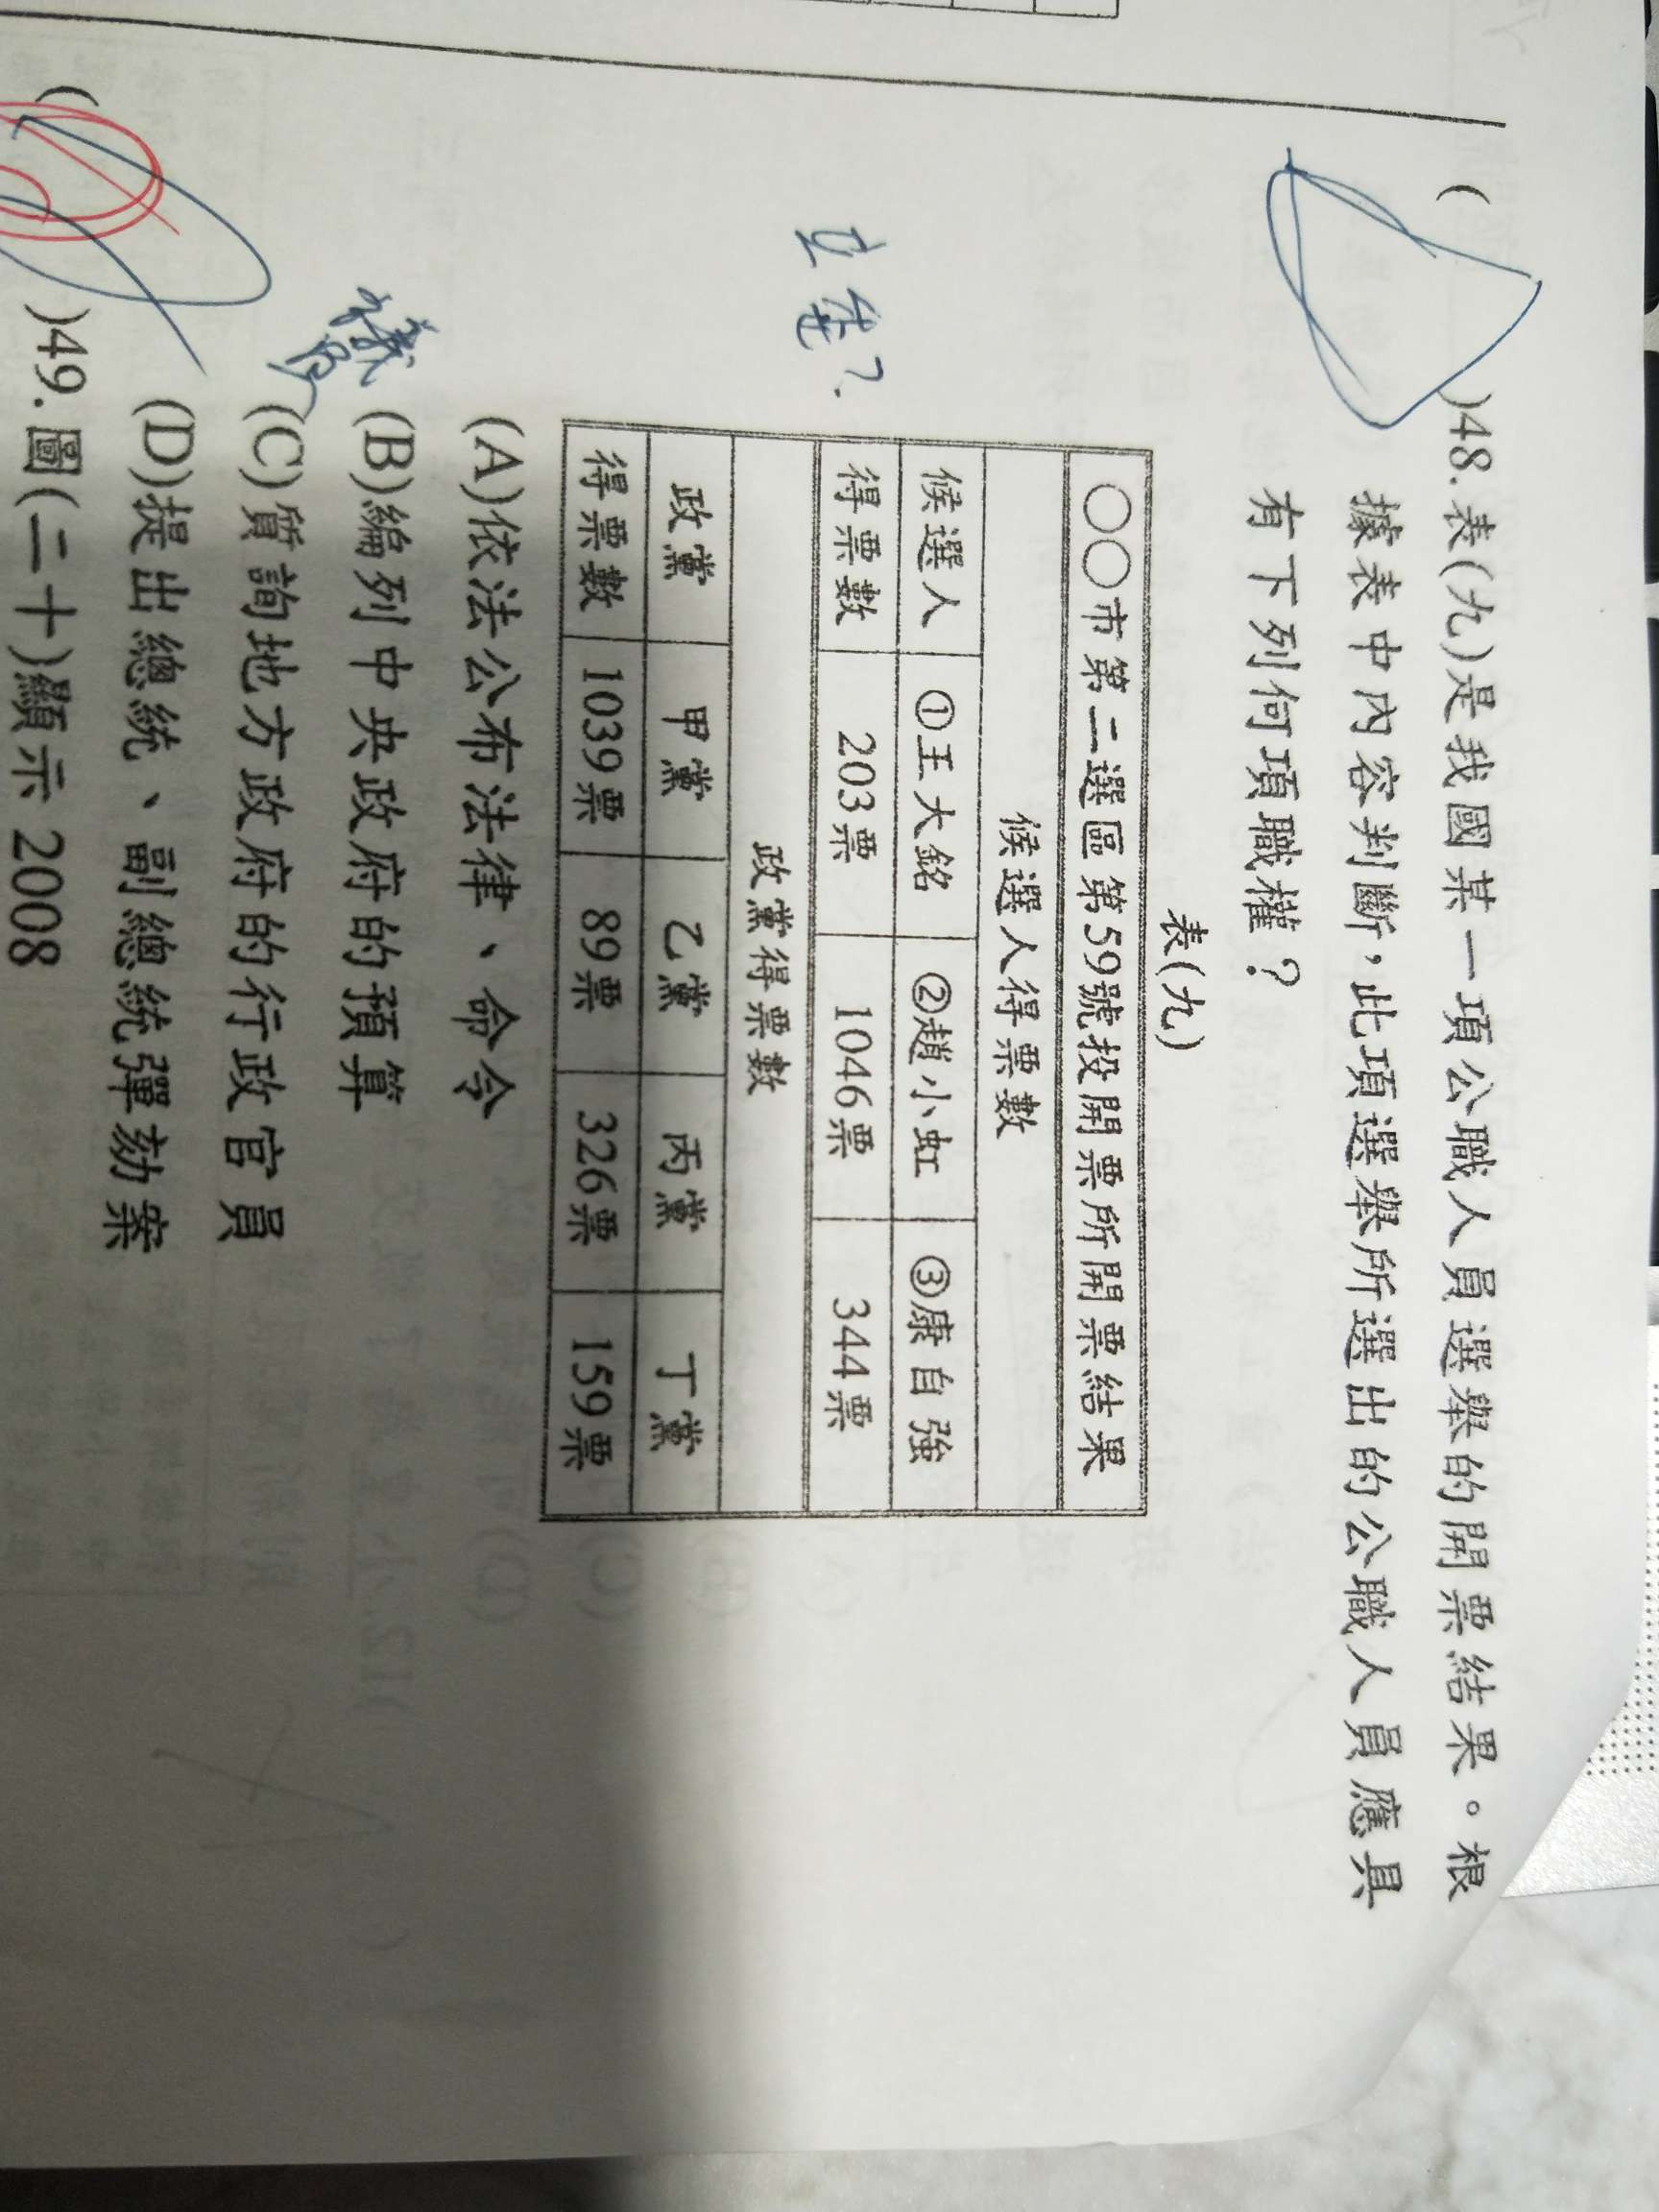 ( )48.表(九)是我國某一項公職人員選舉的開票結果。根
據表中內容判斷，此項選舉所選出的公職人員應具
有下列何項職權？
表(九)
○○市第二選區第59號投開票所開票結果
候選人得票數
候選人 ①王大銘 ②趙小虹 ③康自強
得票數 203票 1046票 344票
政黨得票數
政黨 甲黨 乙黨 丙黨 丁黨
得票數 1039票 89票 326票 159票
立委?
(A)依法公布法律、命令
(B)編列中央政府的預算
議員
(C)質詢地方政府的行政官員
(D)提出總統、副總統彈劾案
( )49.圖(二十)顯示 2008